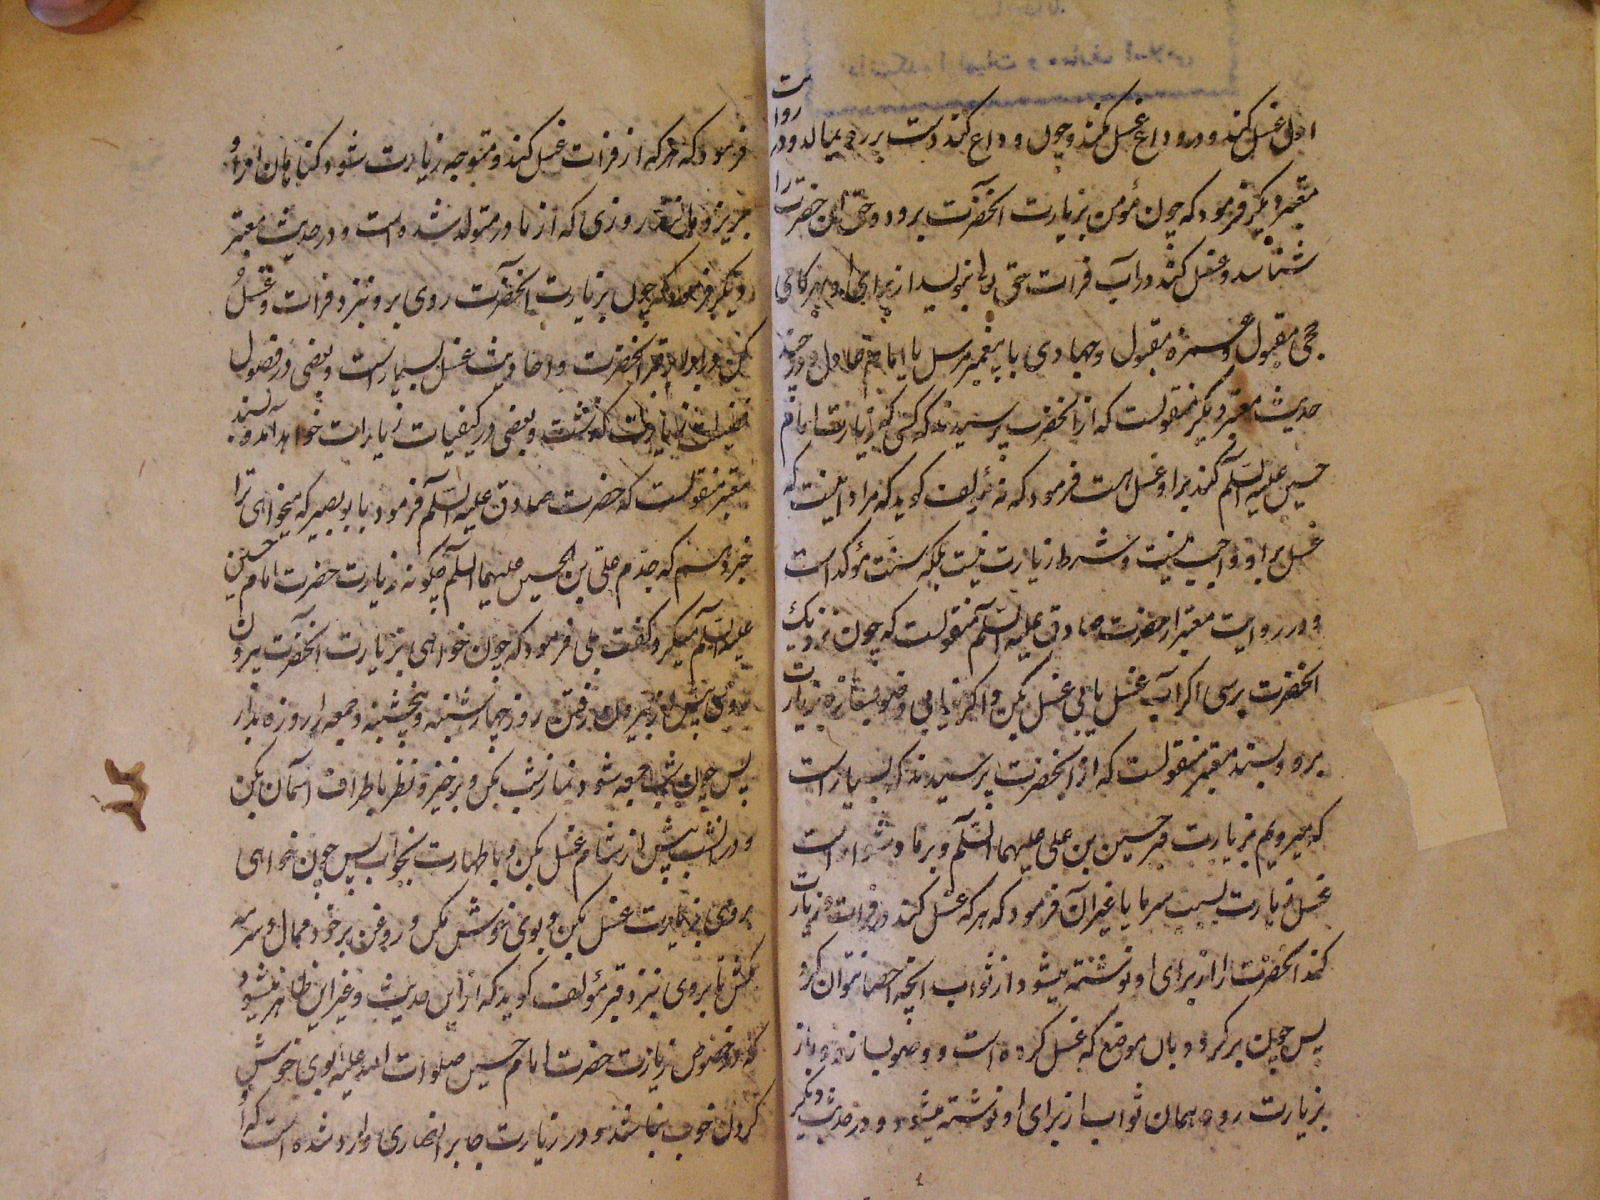 اول غسل کند و در وداع غسل کند و چون وداع کند دست بر رو بمالد و در روایت
معتبر دیگر فرمود که چون مؤمن بزیارت آنحضرت برود و حق آن حضرت را
شناسد و غسل کند در آب فرات حق تعالی بنویسد از برای او بهر گامی
حجی مقبول و عمره مقبول و جهادی با پیغمبر مرسل یا امام عادل و در چند
حدیث معتبر دیگر منقولست که از آنحضرت پرسیدند که کسی که زیارت امام
حسین علیه السلام کند بر او غسل هست فرمود که نه مؤلف گوید که مراد اینست که
غسل بر او واجب نیست و شرط زیارت نیست بلکه سنت مؤکد است
و در روایت معتبر از حضرت صادق علیه السلم منقولست که چون نزدیک
آنحضرت برسی اگر آب غسل یابی غسل بکن و اگر نیابی وضو بساز و بزیارت
برو و بسند معتبر منقولست که از آنحضرت پرسیدند که بسیار است
که میرویم بزیارت قبر حسین بن علی علیهما السلم و بر ما دشوار است
غسل زیارت بسبب سرما یا غیر آن فرمود که هر که غسل کند در فرات و زیارت
کند آنحضرت را از برای او نوشته میشود از ثواب آنچه احصا نتوان کرد
پس چون برگردد بآن موضع که غسل کرده است و وضو بسازد و باز
بزیارت رود همان ثواب از برای او نوشته میشود و در حدیث دیگر
فرمود که هر که از فرات غسل کند و متوجه زیارت شود گناهان از او
بریزد مانند روزی که از مادر متولد شده است و در حدیث معتبر
دیگر فرمود که چون بزیارت آنحضرت روی برو بنزد فرات و غسل
کن در برابر قبر آنحضرت و احادیث غسل بسیار است و بعضی در فصول
زیارت گذشت و بعضی در کیفیات زیارات خواهد آمد و بسند
معتبر منقولست که حضرت صادق علیه السلم فرمود با بو بصیر که میخواهی ترا
خبر دهم که جدم علی بن الحسین علیهما السلم چگونه زیارت حضرت امام حسین
علیه السلم میکرد گفت بلی فرمود که چون خواهی بزیارت آنحضرت بیرون
روی پیش از بیرون رفتن روز چهارشنبه و پنجشنبه و جمعه را روزه بدار
پس چون شب جمعه شود نماز شب بکن و برخیز و نظر باطراف آسمان بکن
و در آنشب پیش از شام غسل بکن و با طهارت بخواب پس چون خواهی
بروی بزیارت غسل بکن و بوی خوش مکن و روغن بر خود ممال و سرمه
مکش تا بروی بنزد قبر مؤلف گوید که از این حدیث و غیر این ظاهر میشود
که در خصوص زیارت حضرت امام حسین صلوات الله علیه بوی خوش
کردن خوب نباشد و در زیارت جابر انصاری وارد شده است که